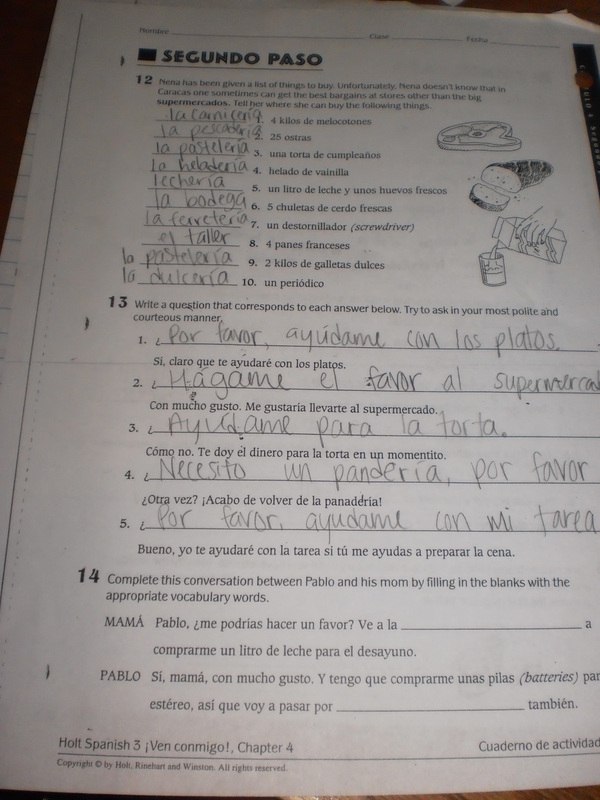 Nombre Clase Fecha
SEGUNDO PASO
12 Nena has been given a list of things to buy. Unfortunately, Nena doesn't know that in
Caracas one sometimes can get the best bargains at stores other than the big
supermercados. Tell her where she can buy the following things.
la carnicería 1. 4 kilos de melocotones
la pescadería 2. 25 ostras
la pastelería 3. una torta de cumpleaños
la heladería 4. helado de vainilla
lechería 5. un litro de leche y unos huevos frescos
la bodega 6. 5 chuletas de cerdo frescas
la ferretería 7. un destornillador (screwdriver)
el taller 8. 4 panes franceses
la pastelería 9. 2 kilos de galletas dulces
la dulcería 10. un periódico
13 Write a question that corresponds to each answer below. Try to ask in your most polite and
courteous manner.
1. ¿ Por favor, ayúdame con los platos.
Sí, claro que te ayudaré con los platos.
2. ¿ Hágame el favor al supermerca
Con mucho gusto. Me gustaría llevarte al supermercado.
3. ¿ Ayúdame para la torta.
Cómo no. Te doy el dinero para la torta en un momentito.
4. ¿ Necesito un pandería, por favor
¿Otra vez? ¡Acabo de volver de la panadería!
5. ¿ Por favor, ayudame con mi tarea
Bueno, yo te ayudaré con la tarea si tú me ayudas a preparar la cena.
14 Complete this conversation between Pablo and his mom by filling in the blanks with the
appropriate vocabulary words.
MAMÁ Pablo, ¿me podrías hacer un favor? Ve a la a
comprarme un litro de leche para el desayuno.
PABLO Sí, mamá, con mucho gusto. Y tengo que comprarme unas pilas (batteries) par
estéreo, así que voy a pasar por también.
Holt Spanish 3 ¡Ven conmigo!, Chapter 4 Cuaderno de actividad
Copyright © by Holt, Rinehart and Winston. All rights reserved.